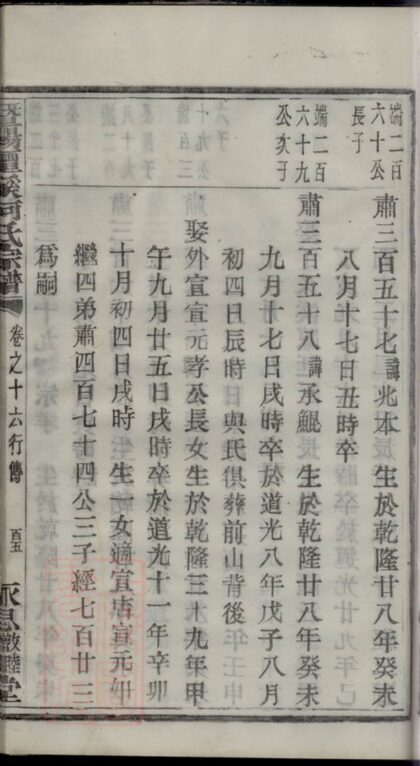 端二百
六十公
長子
肅三百五十七諱兆本　生於乾隆廿八年癸未
八月十七日丑時卒
端二百
六十九
公次子
肅三百五十八諱承鯤　生於乾隆廿八年癸未
九月十七日戌時卒於道光八年戊子八月
初四日辰時　與氏俱葬前山背後
娶外宣宣元孝公長女生於乾隆三十九年甲
午九月廿五日戌時卒於道光十一年辛卯
十月初四日戌時　生一女適宜店宣元如
繼四弟肅四百七十四公三子經七百廿三
為嗣
何氏宗譜
卷之十六行傳
百五
永思敦睦堂